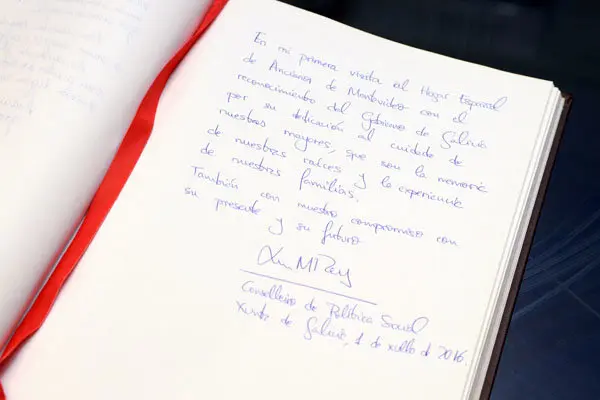 En mi primera visita al Hogar Español
de Ancianos de Montevideo con el
reconocimiento del Gobierno de Galicia
por su dedicación al cuidado de
nuestros mayores, que son la memoria
de nuestras raíces y la experiencia
de nuestras familias.
También con nuestro compromiso con
su presente y su futuro
Conselleiro de Política Social
Xunta de Galicia, 1 de xullo de 2016.